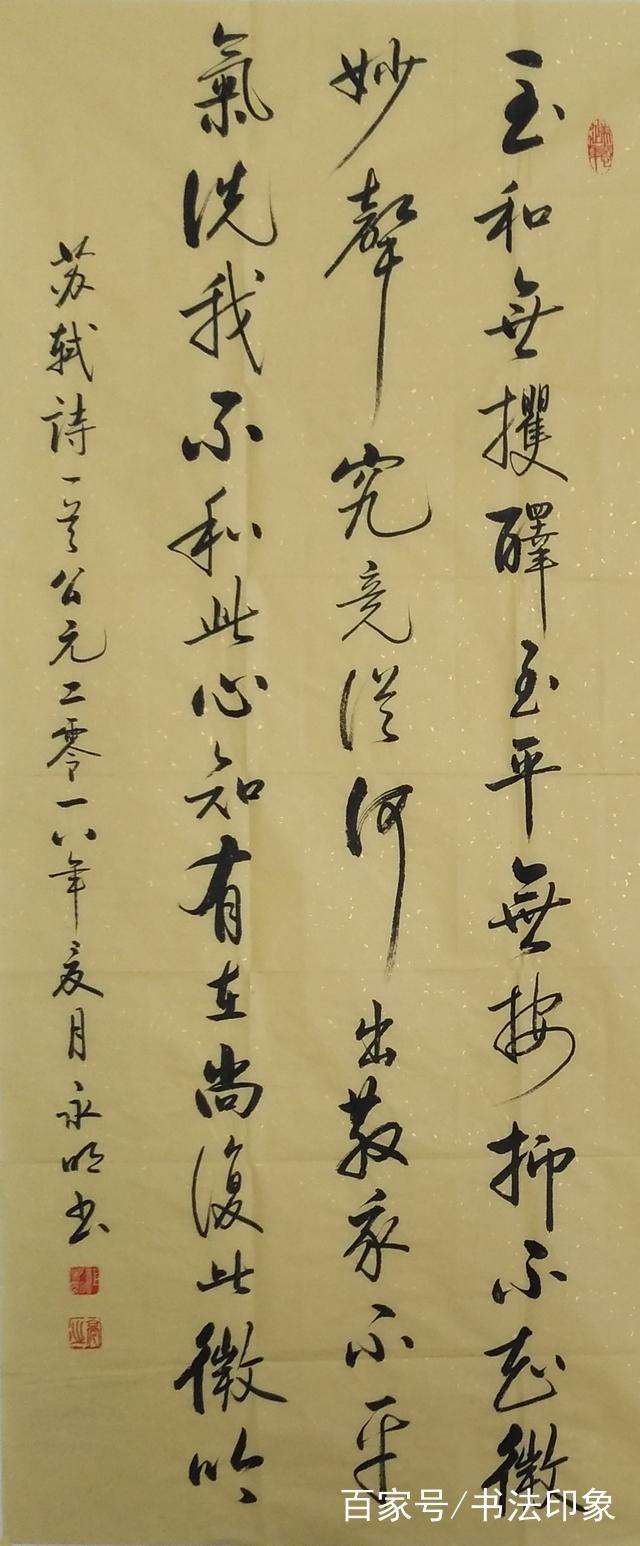 至和無攫醳至平無按抑不知微
妙聲究竟從何出散我不平
氣洗我不和此心知有在尚復此微吟
苏轼詩一首公元二零一八年夏月永明书
百家号/书法印象